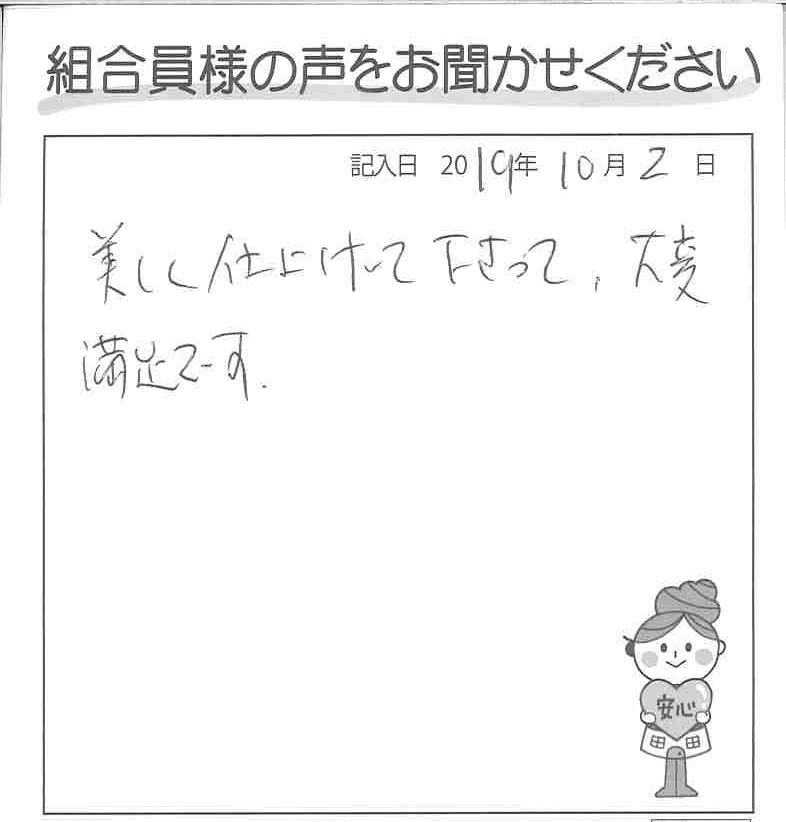 組合員様の声をお聞かせください
記入日 2019年 10月 2日
美しく仕上げて下さって、大変
満足です.
安心